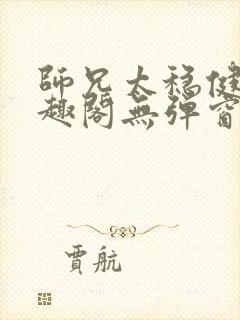 師兄太穩健
趣閣無彈窗
賈航